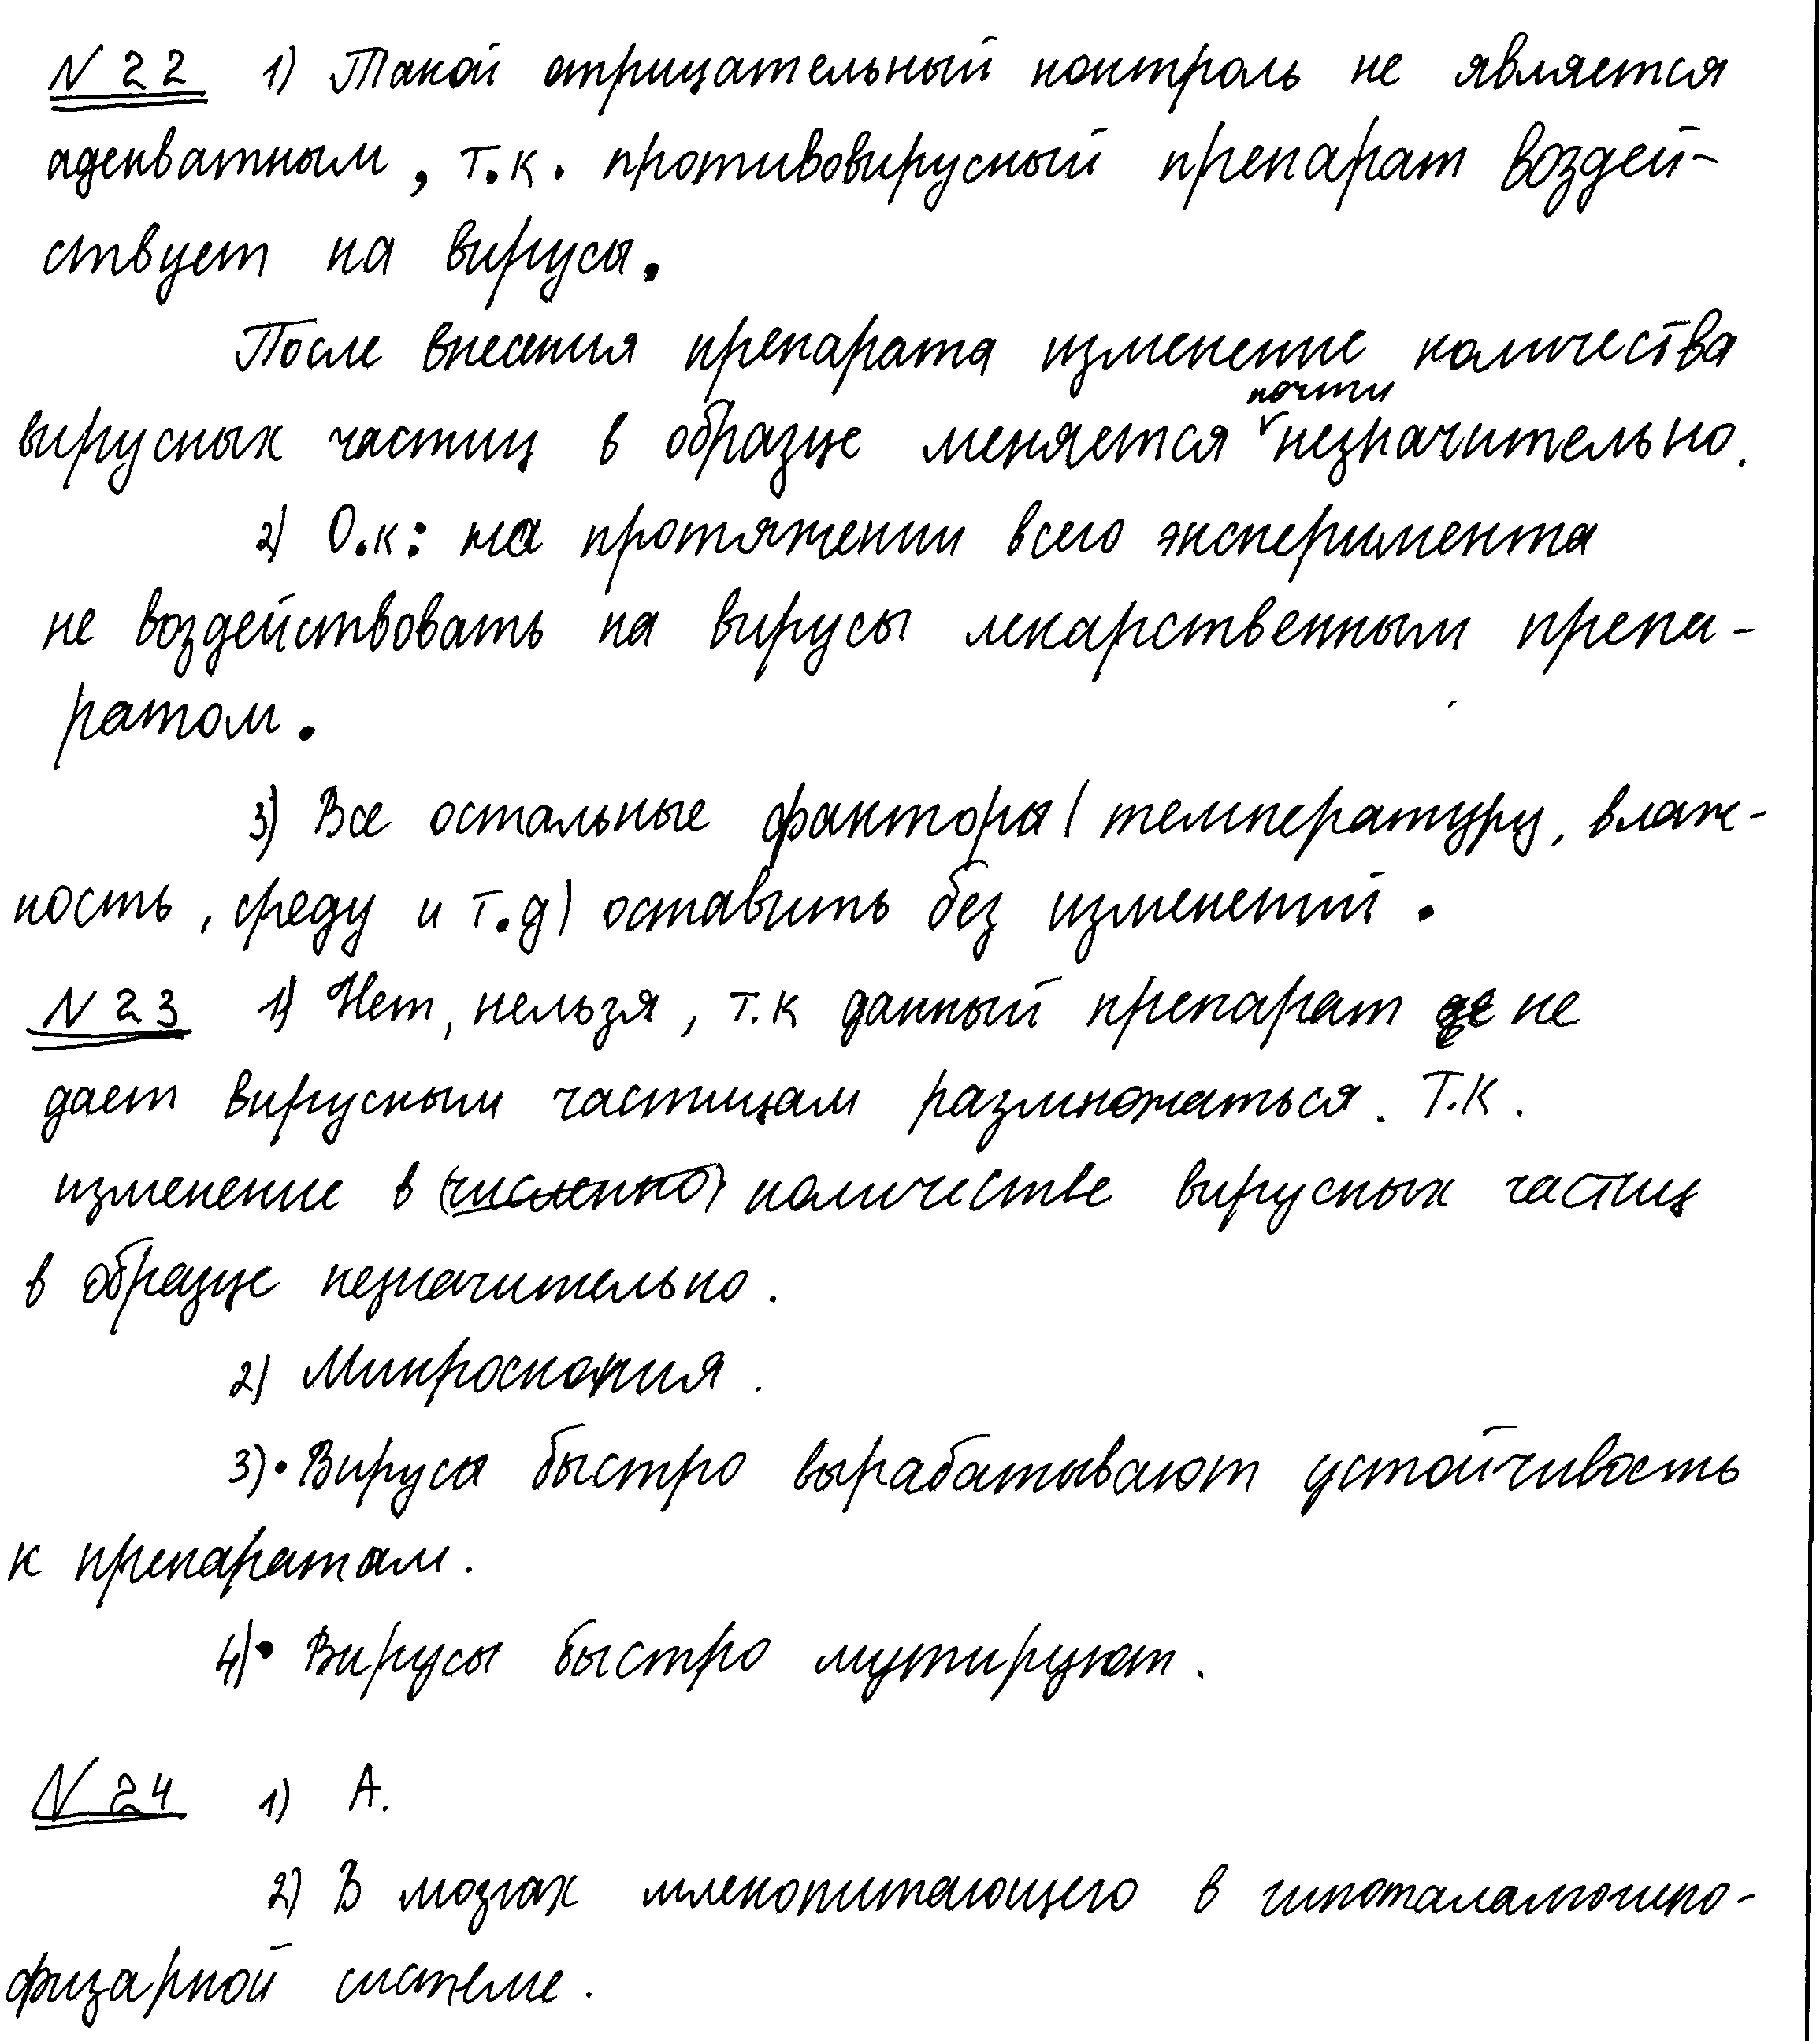 №22 1) Такой отрицательный контроль не является
адекватным, т.к. противовирусный препарат воздей-
ствует на вирусы.
После внесения препарата изменение количества
почти
вирусных частиц в образце меняется незначительно.
2) О.к: на протяжении всего эксперимента
не воздействовать на вирусы лекарственным препа-
ратом.
3) Все остальные факторы (температуру, влаж-
ность, среду и т.д) оставить без изменений.
№23 1) Нет, нельзя, т.к данный препарат не
дает вирусным частицам размножаться. Т.К.
изменение в (численно) количестве вирусных частиц
в образце незначительно.
2) Микроскопия.
3)• Вирусы быстро вырабатывают устойчивость
к препаратам.
4)• Вирусы быстро мутируют.
№24 1) А.
2) В мозгах млекопитающего в гипоталамогипо-
физарной системе.